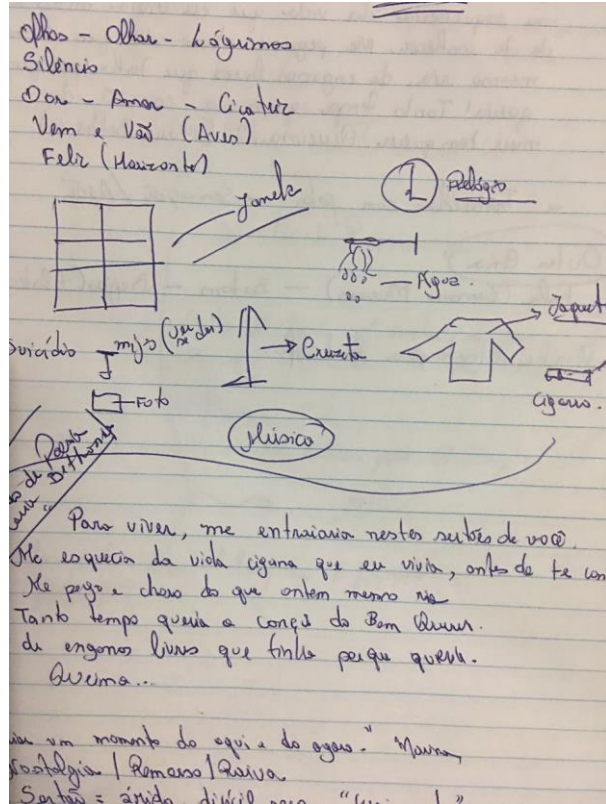 Olhos - Olhar - Lágrimas
Silêncio
Dor - Amor - Cicatriz
Vem e Vão (Aves)
Feliz (Horizonte)
Janela
Relógio
Água.
Jaqueta
suicídio
Cruzeta
Foto
Cigarro.
Música
Para viver, me entraiaria nestes sertões de você.
Me esquecia da vida cigana que eu vivia, antes de te con
Me pego e choro do que ontem mesmo ria
Tanto tempo queria a canção do Bem Querer.
de enganos livres que tinha porque queria.
Queima...
um momento do aqui e do agora."
Nostalgia | Remorso | Raiva
Sertão = árido, difícil